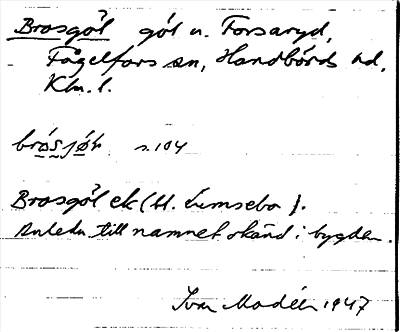 Brosgöl göl n. Forsaryd,
Fågelfors sn, Handbörds hd,
Klm. l.
s. 104
Brosgöl ek (
Anledn. till namnet okänd i bygden.
Ivar Modéer 1947